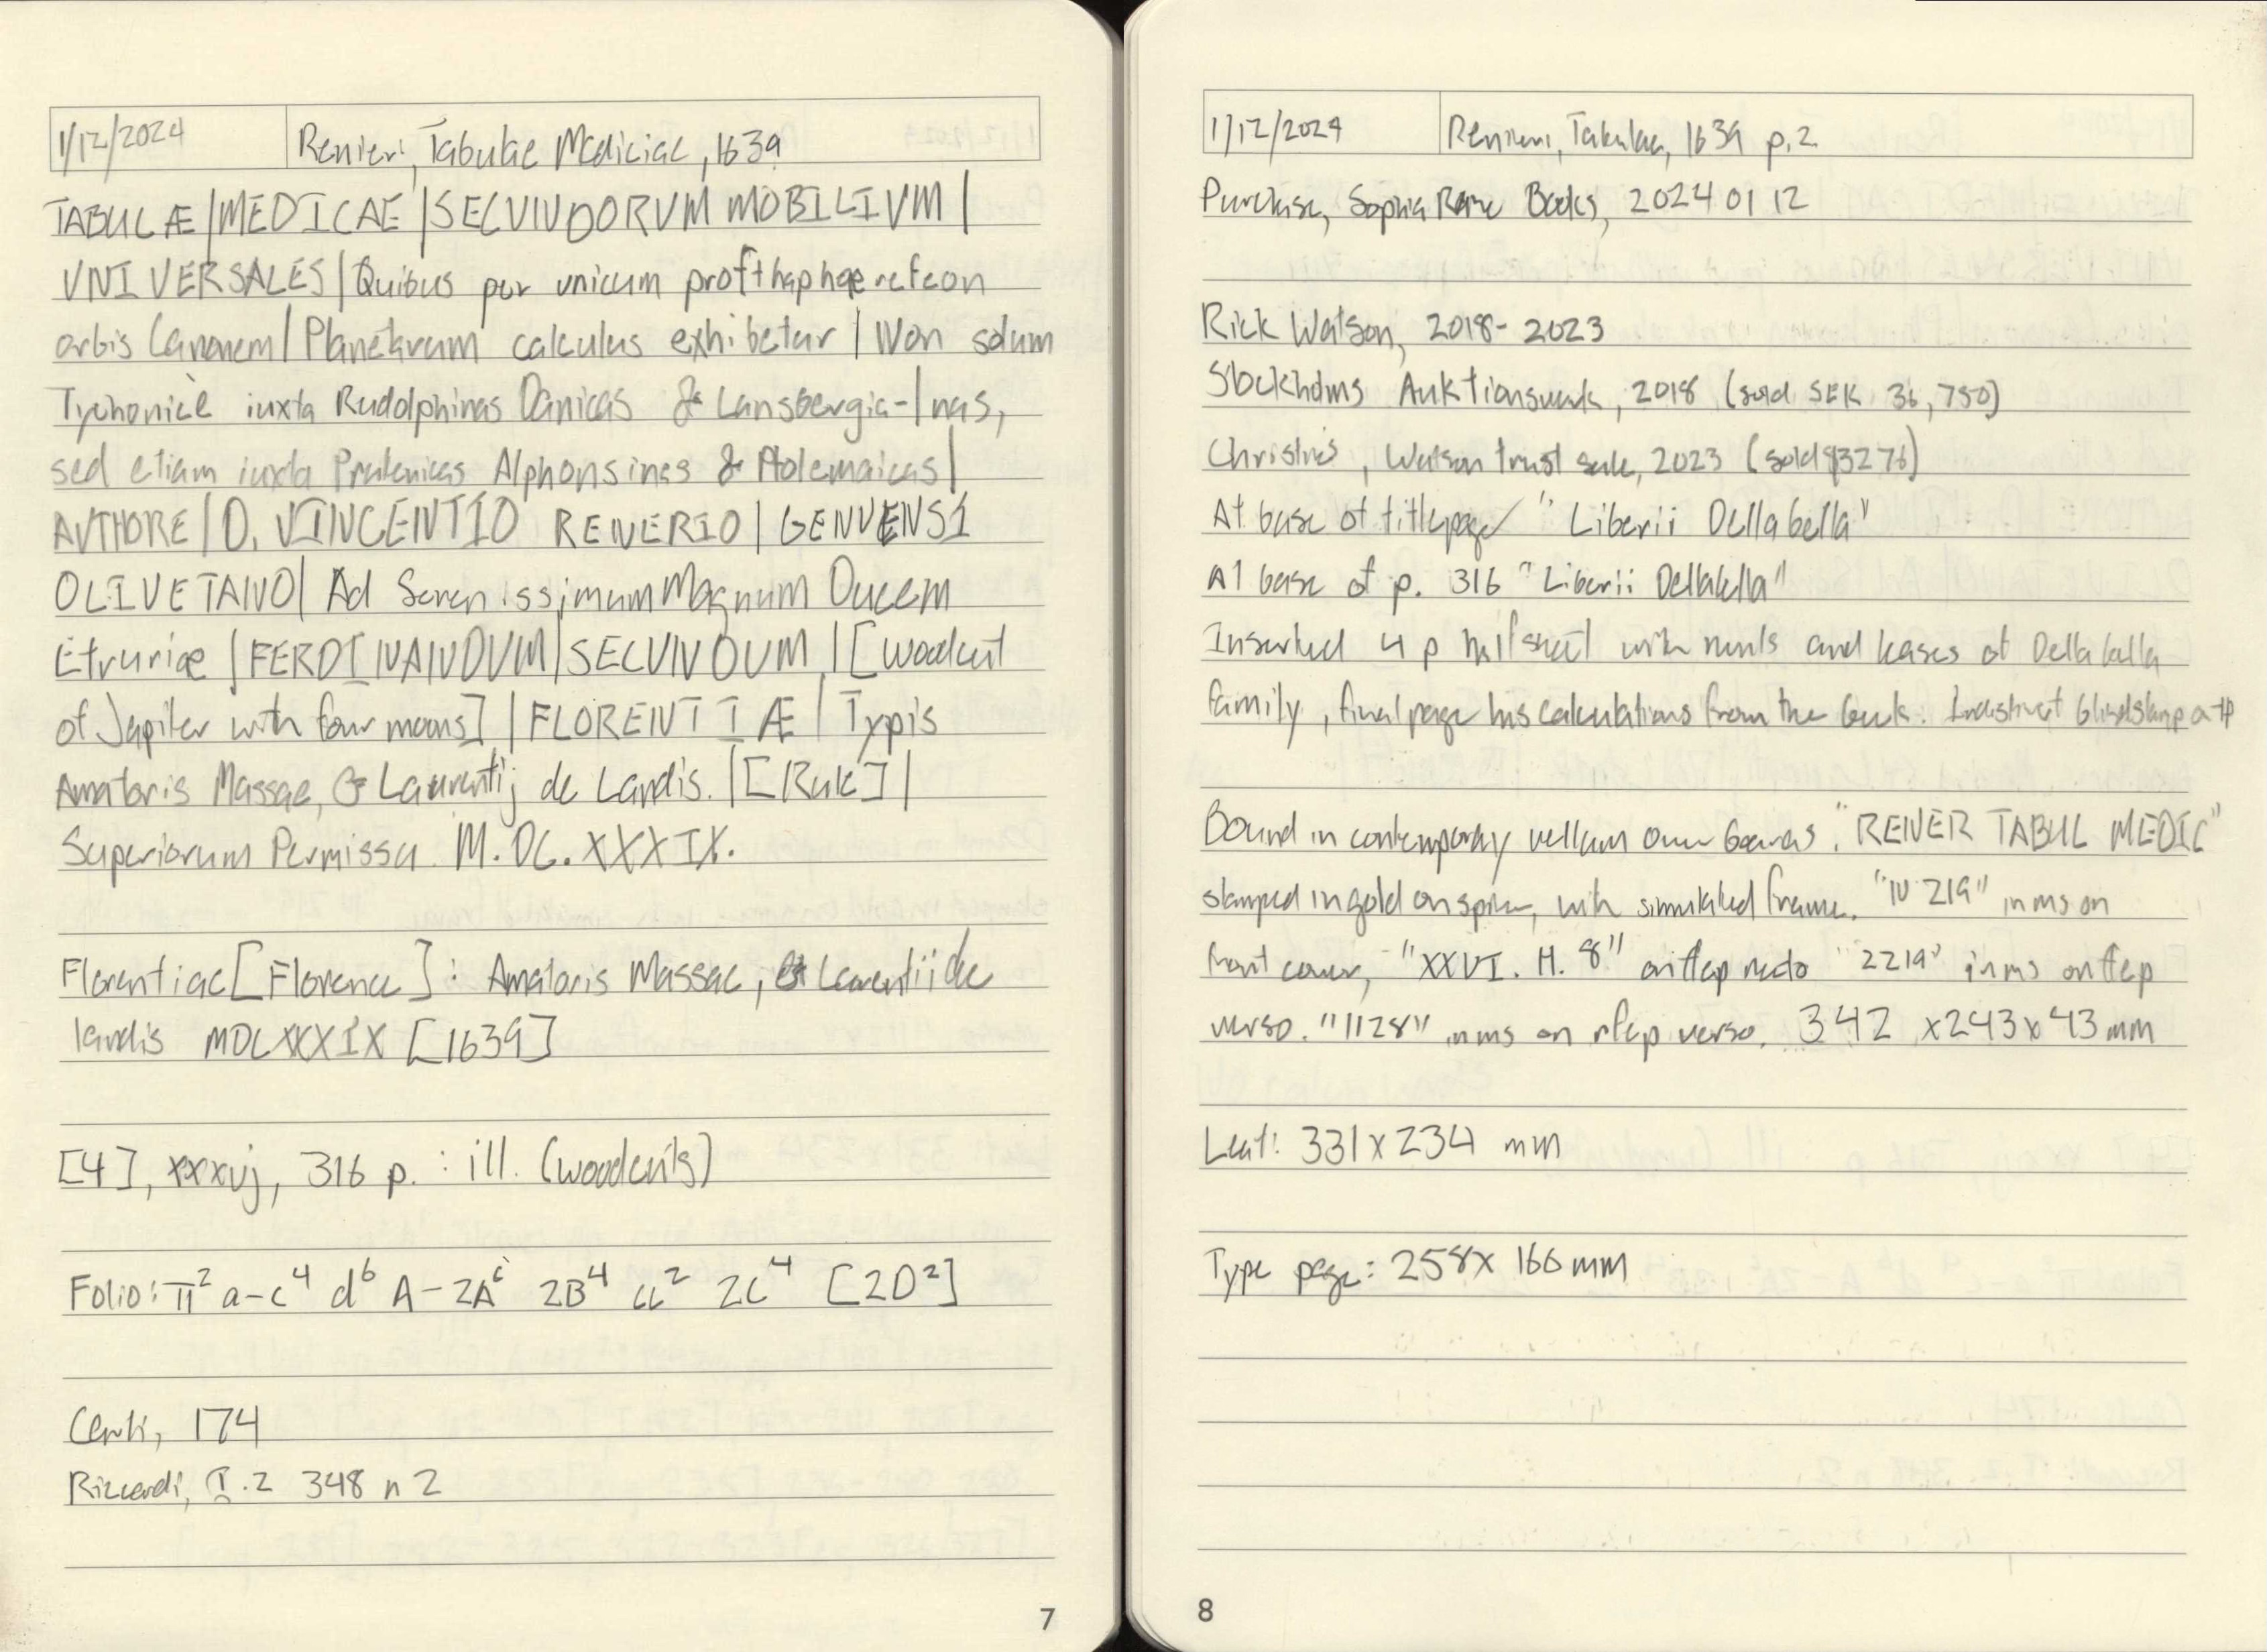 1/12/2024 Renieri, Tabulae Mediciae, 1639
TABULÆ |MEDICAE |SECVNDORVM MOBILIVM |
VNIVERSALES | Quibus per unicum profthaphaerefeon
orbis Canonem | Planetarum calculus exhibetur | Non solum
Tychonicè iuxta Rudolphinas Danicas & Lansbergia-| nas,
sed etiam iuxta Prutenicas Alphonsinas & Ptolemaicas |
AVTHORE | D. VINCENTIO RENERIO | GENVENSI
OLIVETANO | Ad Serenissimum Magnum Ducem
Etruriæ | FERDINANDVM | SECVNDUM | [Woodcut
of Jupiter with four moons] | FLORENTIÆ | Typis
Amatoris Massae, & Laurentij de Landis. | [Rule] |
Superiorum Permissu. M.DC.XXXIX.
Florentiae [Florence]: Amatoris Massae, & Laurentii de
landis MDCXXXIX [1639]
[4], xxxvj, 316 p. : ill. (woodcuts)
Folio: π² a-c⁴ d⁶ A-2A⁶ 2B⁴ cc² 2C⁴ [2D²]
Centi, 174
Riccardi, I.2 348 n 2
7
1/12/2024 Renieri, Tabulae, 1639 p.2
Purchase, Sophia Rare Books, 2024 01 12
Rick Watson, 2018-2023
Stockholms Auktionsverk, 2018 (sold SEK 36,750)
Christie's, Watson trust sale, 2023 (sold $3276)
At base of titlepage "Liberii Dellabella"
At base of p. 316 "Liberii Dellabella"
Inserted 4 p half sheet with rents and leases of Dellabella
family, final page has calculations from the book. Indistinct blindstamp on tp
Bound in contemporary vellum over boards. "RENER TABUL MEDIC"
stamped in gold on spine, with simulated frame. "N 219" in ms on
front cover, "XXVI. H. 8" on ffep recto "2219" in ms on ffep
verso. "1128" in ms on rfep verso. 342 x 243 x 43 mm
Leaf: 331 x 234 mm
Type page: 258 x 166 mm
8